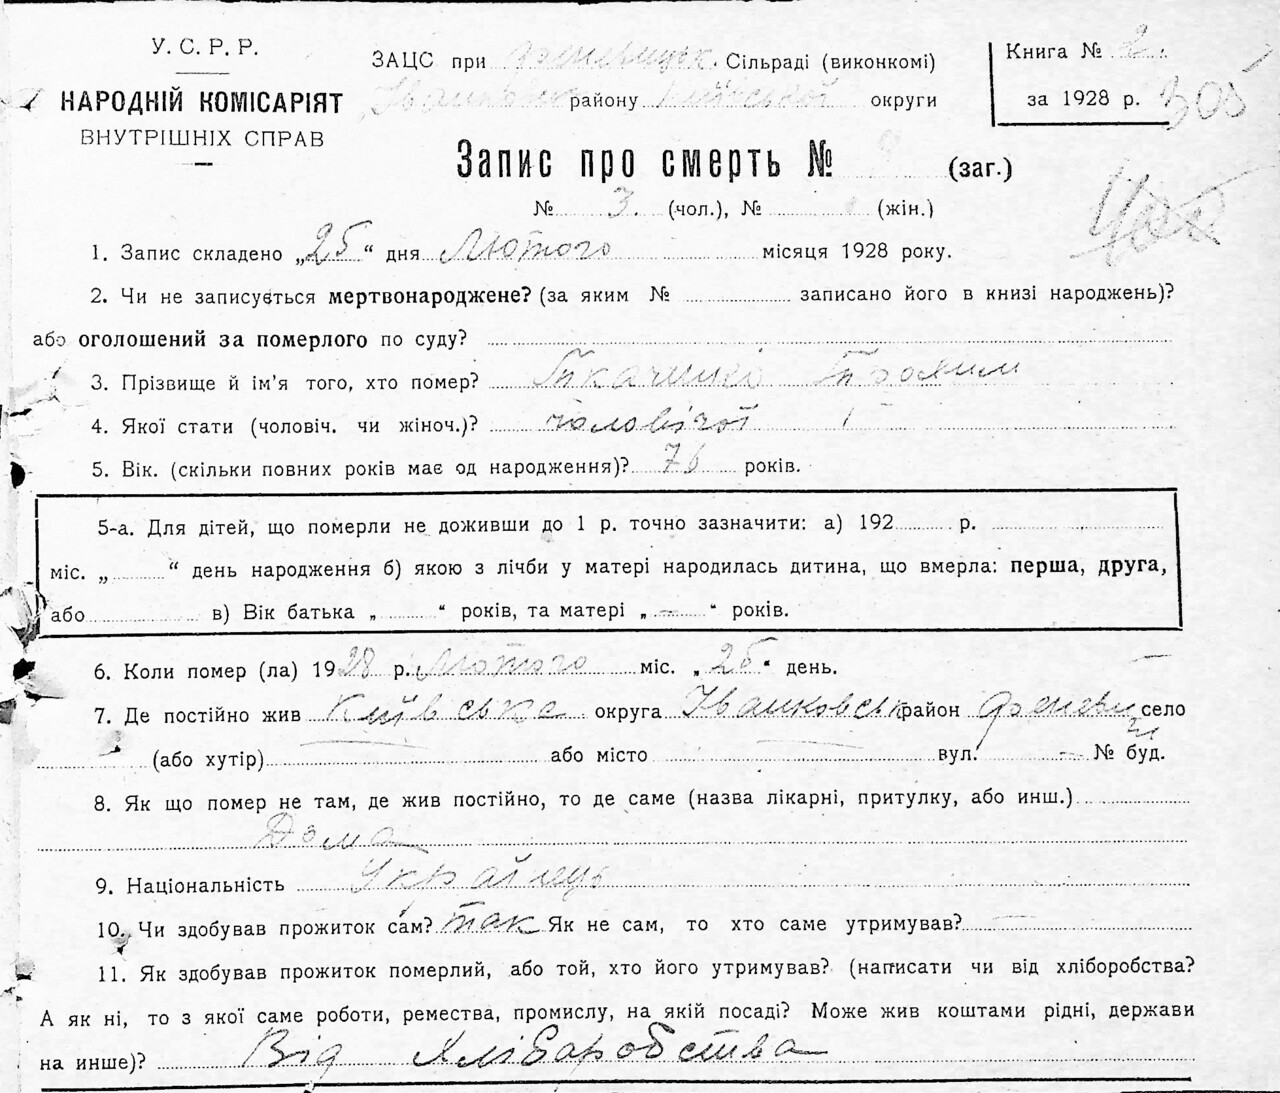 У. С. Р. Р.
НАРОДНІЙ КОМІСАРІЯТ
ВНУТРІШНІХ СПРАВ
ЗАЦС при Сільраді (виконкомі)
району Київської округи
Книга № 2
за 1928 р. 305
Запис про смерть № (заг.)
№ 3. (чол.), № (жін.)
1. Запис складено „25“ дня Лютого місяця 1928 року.
2. Чи не записується мертвонароджене? (за яким № записано його в книзі народжень)?
або оголошений за померлого по суду?
3. Прізвище й ім'я того, хто помер? Ткаченко Трохим
4. Якої стати (чоловіч. чи жіноч.)? чоловічої
5. Вік. (скільки повних років має од народження)? 76 років.
5-а. Для дітей, що померли не доживши до 1 р. точно зазначити: а) 192 р.
міс. „ “ день народження б) якою з лічби у матері народилась дитина, що вмерла: перша, друга,
або в) Вік батька „ “ років, та матері „ — “ років.
6. Коли помер (ла) 1928 р. Лютого міс. „25“ день.
7. Де постійно жив Київська округа Іванковськ район село
(або хутір) або місто вул. — № буд.
8. Як що помер не там, де жив постійно, то де саме (назва лікарні, притулку, або инш.)
Дома
9. Національність Українець
10. Чи здобував прожиток сам? так Як не сам, то хто саме утримував?
11. Як здобував прожиток померлий, або той, хто його утримував? (написати чи від хліборобства?
А як ні, то з якої саме роботи, ремества, промислу, на якій посаді? Може жив коштами рідні, держави
на инше)? Від Хліборобства